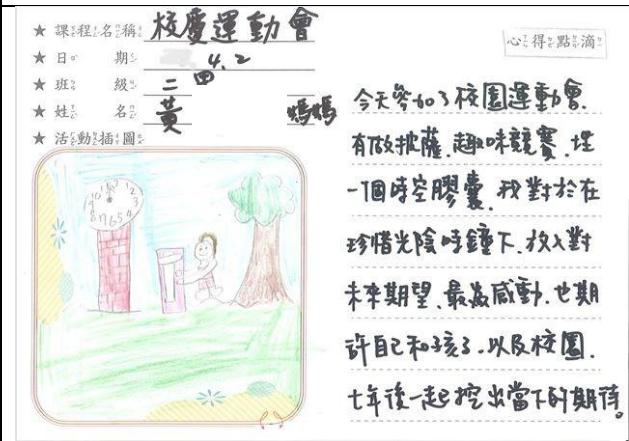 ★ 課程名稱：校慶運動會
★ 日期：4.2
★ 班級：二四
★ 姓名：黃 媽媽
★ 活動插圖：
心得點滴
今天參加了校園運動會.
有做披薩.趣味競賽.埋
一個時空膠囊.我對於在
珍惜光陰時鐘下.放入對
未來期望.最為感動.也期
許自己和孩子.以及校園.
七年後一起挖出當下的期待。
12
1
2
3
4
5
6
7
8
9
10